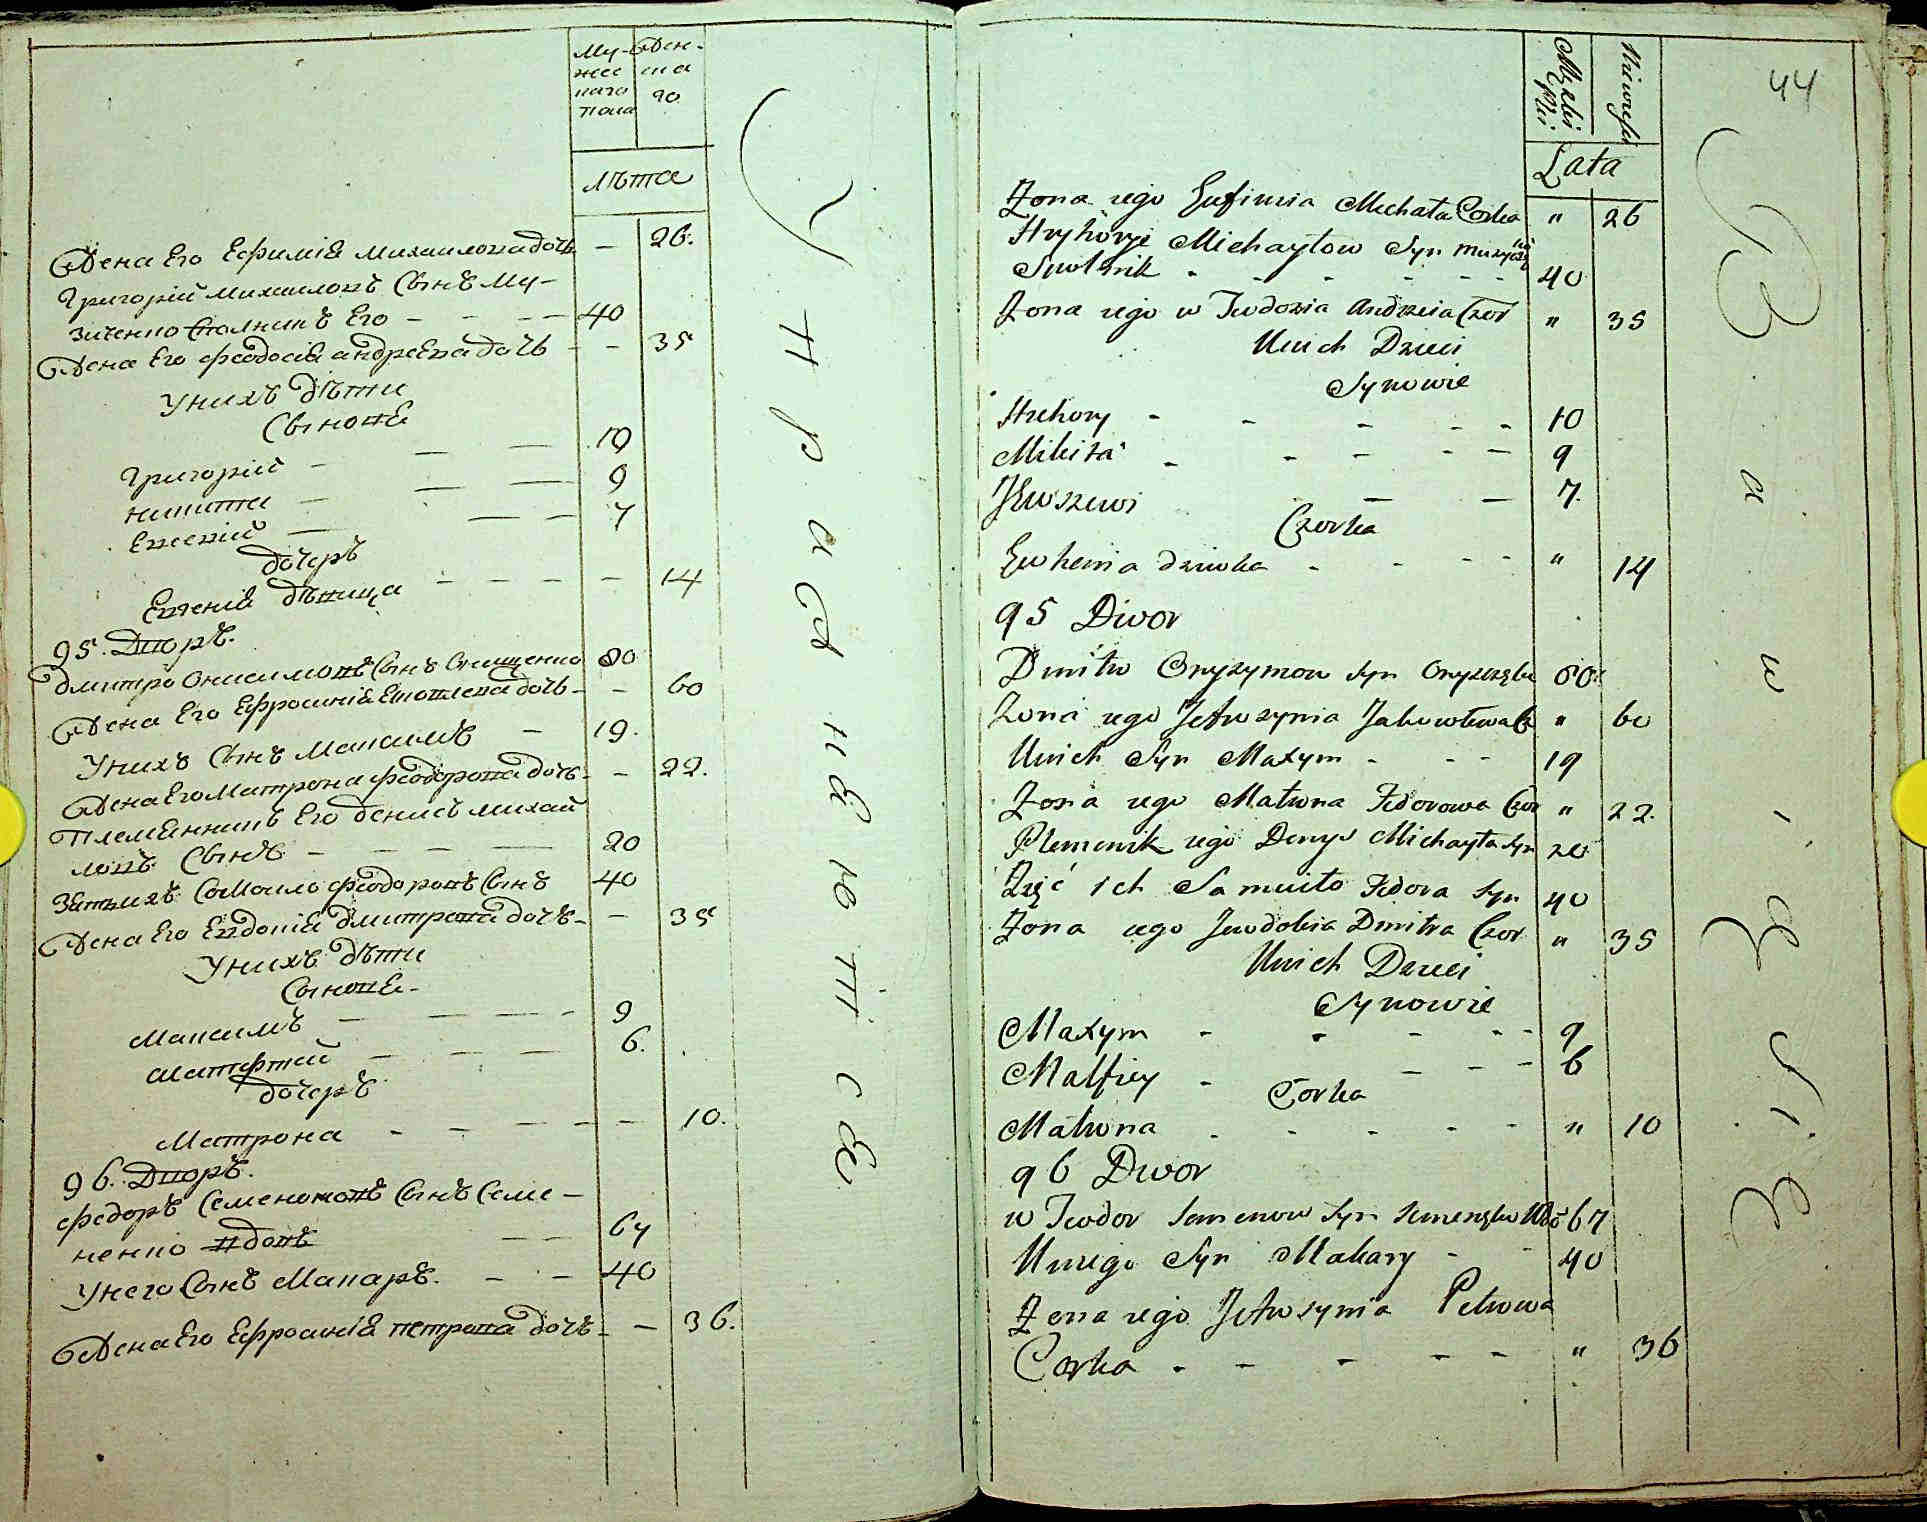 Мужескаго пола
Женскаго
лѣта
Жена Его Ефимія Михаилова дочь — 26.
Григорій Михаиловъ Сынъ Му-
зиченко Сполникъ Его — — — 40
Жена Его Феодосія андреева дочь — — 35
У нихъ дѣти
Сыновя
Григорій — — — 10
никита — — — 9
Евсевій — — — 7
дочерь
Евгенія дѣвица — — — — — 14
95. Дворъ.
дмитро Онисимовъ Сынъ Онищенко 80
Жена Его Ефросинія Яковлева дочь — — 60
У нихъ Сынъ Максимъ — 19.
Жена Его Матрона Феодорова дочь — — 22.
Племянникъ Его денисъ михай
ловъ Сынъ — — — — 20
Зять ихъ Самойло Феодоровъ Сынъ 40
Жена Его Евдокія дмитрова дочь — — 35
У нихъ дѣти
Сыновя —
Максимъ — — — — 9
Матфтей — — — — 6.
дочерь
Матрона — — — — — — 10.
96. Дворъ.
федоръ Семеновъ Сынъ Семе —
ненко вдовъ — — 67
У него Сынъ Макаръ. — — 40
Жена Его Ефросинія петрова дочь — — 36.
У к р а ж н я ю т і с я
44
Męzki Płci
Niewieści
Lata
Żona iego Eufimia Michała Corka " 26
Hryhoryi Michayłow Syn Muzycz
Suolnik - - - - - - 40
Żona iego w Teodozia Andreia Czor " 35
Unich Dzieci
Synowie
Hrehory - - - - - 10
Mikita - - - - - 9
Jewsewi — — 7.
Czorka
Ewhenia dziewka - - - - " 14
95 Dwor
Dmitro Onyzymow Syn Onyszczęko 80.
Żona iego Jefrozynia Jakowlewa Cz " 60
Unich Syn Maxym - - - 19
Żona iego Matrona Fedorowa Czor " 22.
Plemenik iego Denys Michayła Syn 20
Zięć ich Samuiło Fedora Syn 40
Żona iego Jewdokia Dmitra Czor " 35
Unich Dzieci
Synowie
Maxym - - - - - 9
Matfiey - - - - 6
Corka
Matrona - - - - - " 10
96 Dwor
w Teodor Semenow Syn Semenęko Wdo 67
Uniego Syn Makary - - 40
Żona iego Jefrozynia Petrowa
Corka - - - - - " 36